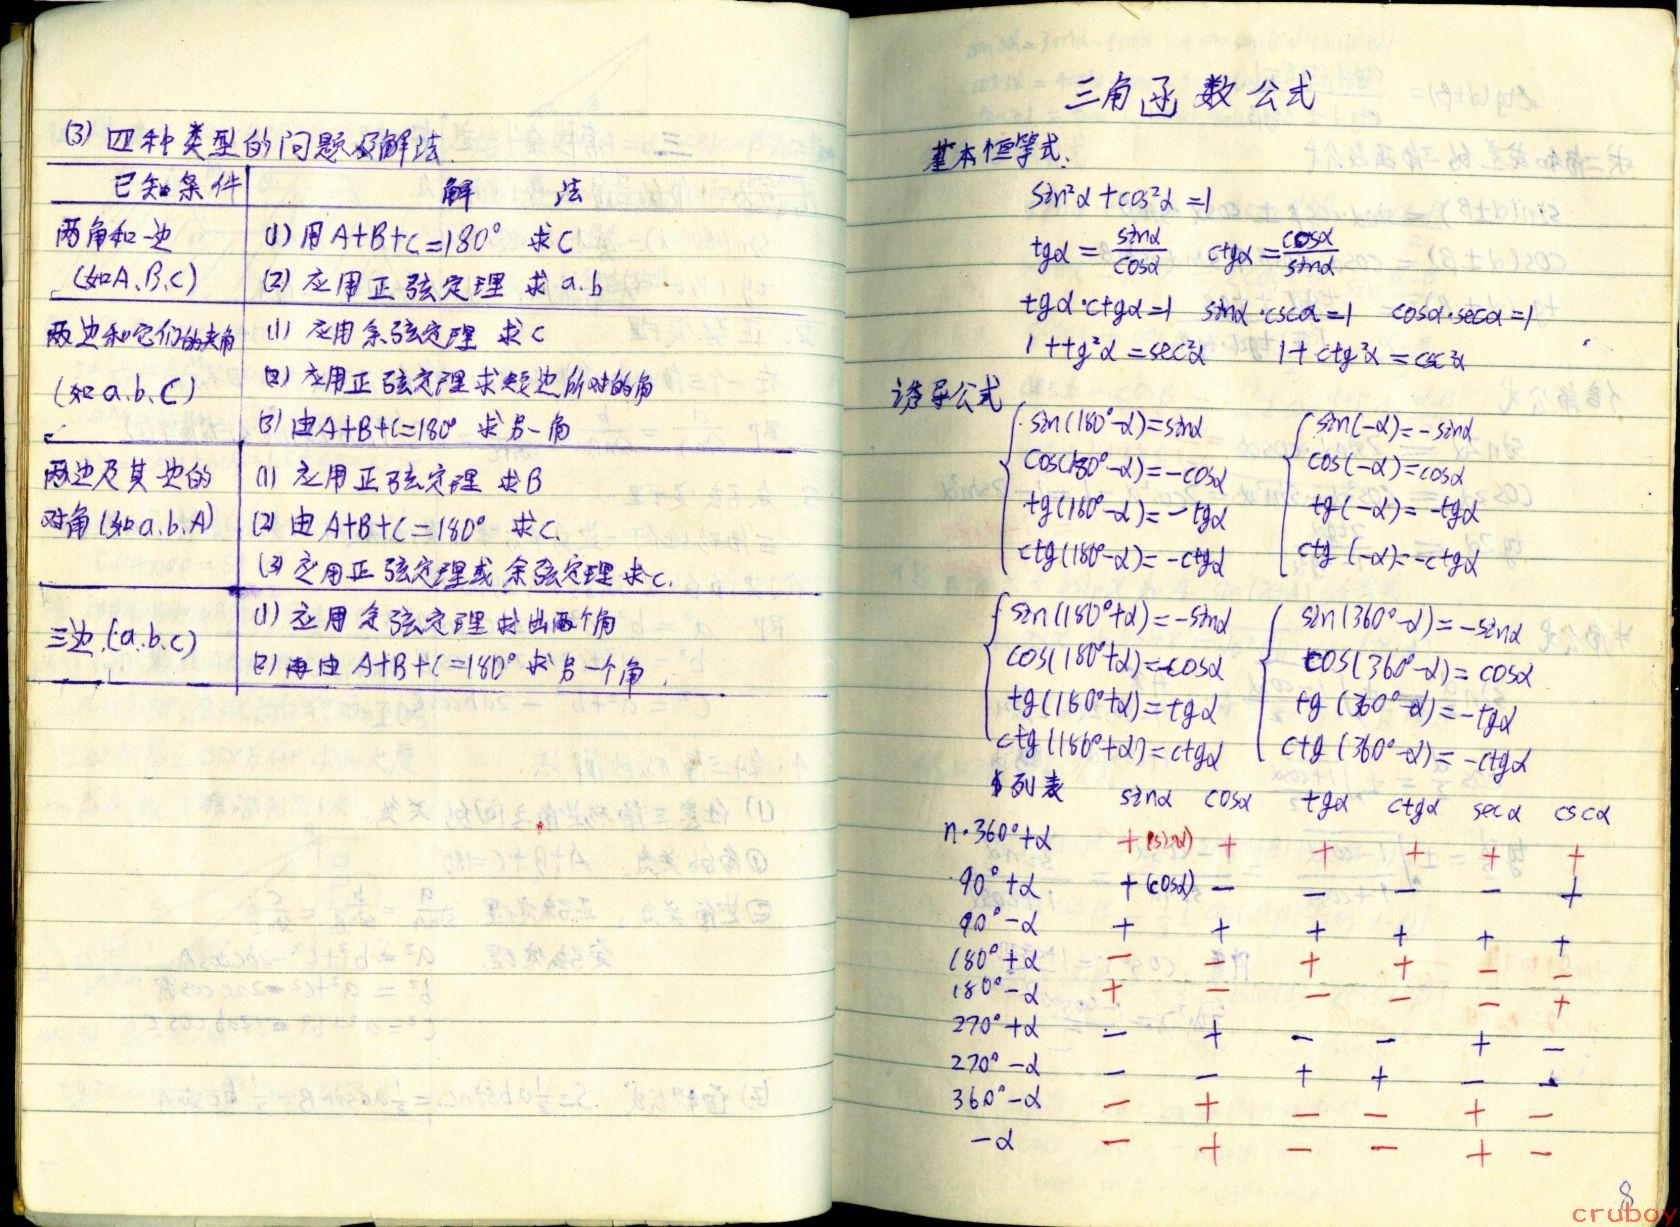 (3) 四种类型的问题及解法.
已知条件 解 法
两角和一边
(如A.B.c)
(1) 用A+B+C=180° 求C
(2) 应用正弦定理 求a.b
两边和它们的夹角
(如a.b.C)
(1) 应用余弦定理 求c
(2) 应用正弦定理求短边所对的角
(3) 由A+B+C=180° 求另一角
两边及其边的
对角(如a.b.A)
(1) 应用正弦定理 求B
(2) 由A+B+C=180° 求C.
(3) 应用正弦定理或余弦定理求c.
三边(a.b.c)
(1) 应用余弦定理求出两个角
(2) 再由A+B+C=180° 求另一个角.
三角函数公式
基本恒等式.
sin²α+cos²α=1
tgα=sinα/cosα ctgα=cosα/sinα
tgα·ctgα=1 sinα·cscα=1 cosα·secα=1
1+tg²α=sec²α 1+ctg²α=csc²α
诱导公式
sin(180°-α)=sinα sin(-α)=-sinα
cos(180°-α)=-cosα cos(-α)=cosα
tg(180°-α)=-tgα tg(-α)=-tgα
ctg(180°-α)=-ctgα ctg(-α)=-ctgα
sin(180°+α)=-sinα sin(360°-α)=-sinα
cos(180°+α)=-cosα cos(360°-α)=cosα
tg(180°+α)=tgα tg(360°-α)=-tgα
ctg(180°+α)=ctgα ctg(360°-α)=-ctgα
列表 sinα cosα tgα ctgα secα cscα
n·360°+α +(sinα) + + + + +
90°+α +(cosα) - - - - +
90°-α + + + + + +
180°+α - - + + - -
180°-α + - - - - +
270°+α - + - - + -
270°-α - - + + - -
360°-α - + - - + -
-α - + - - + -
8
cruboy